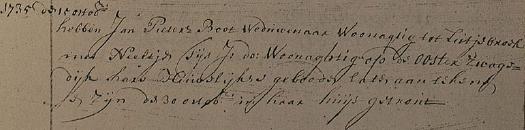 1735 de 10 octob:
hebben Jan Pieterz Boot Weduwenaar Woonagtig tot Lutjebroek
met Neeltje Sijs J: d: Woonagtig op de Ooster Zwage-
dijk hare Huwelijkse geboode laten aan teken
& Zijn de 30 octob: in haar huijs getrout